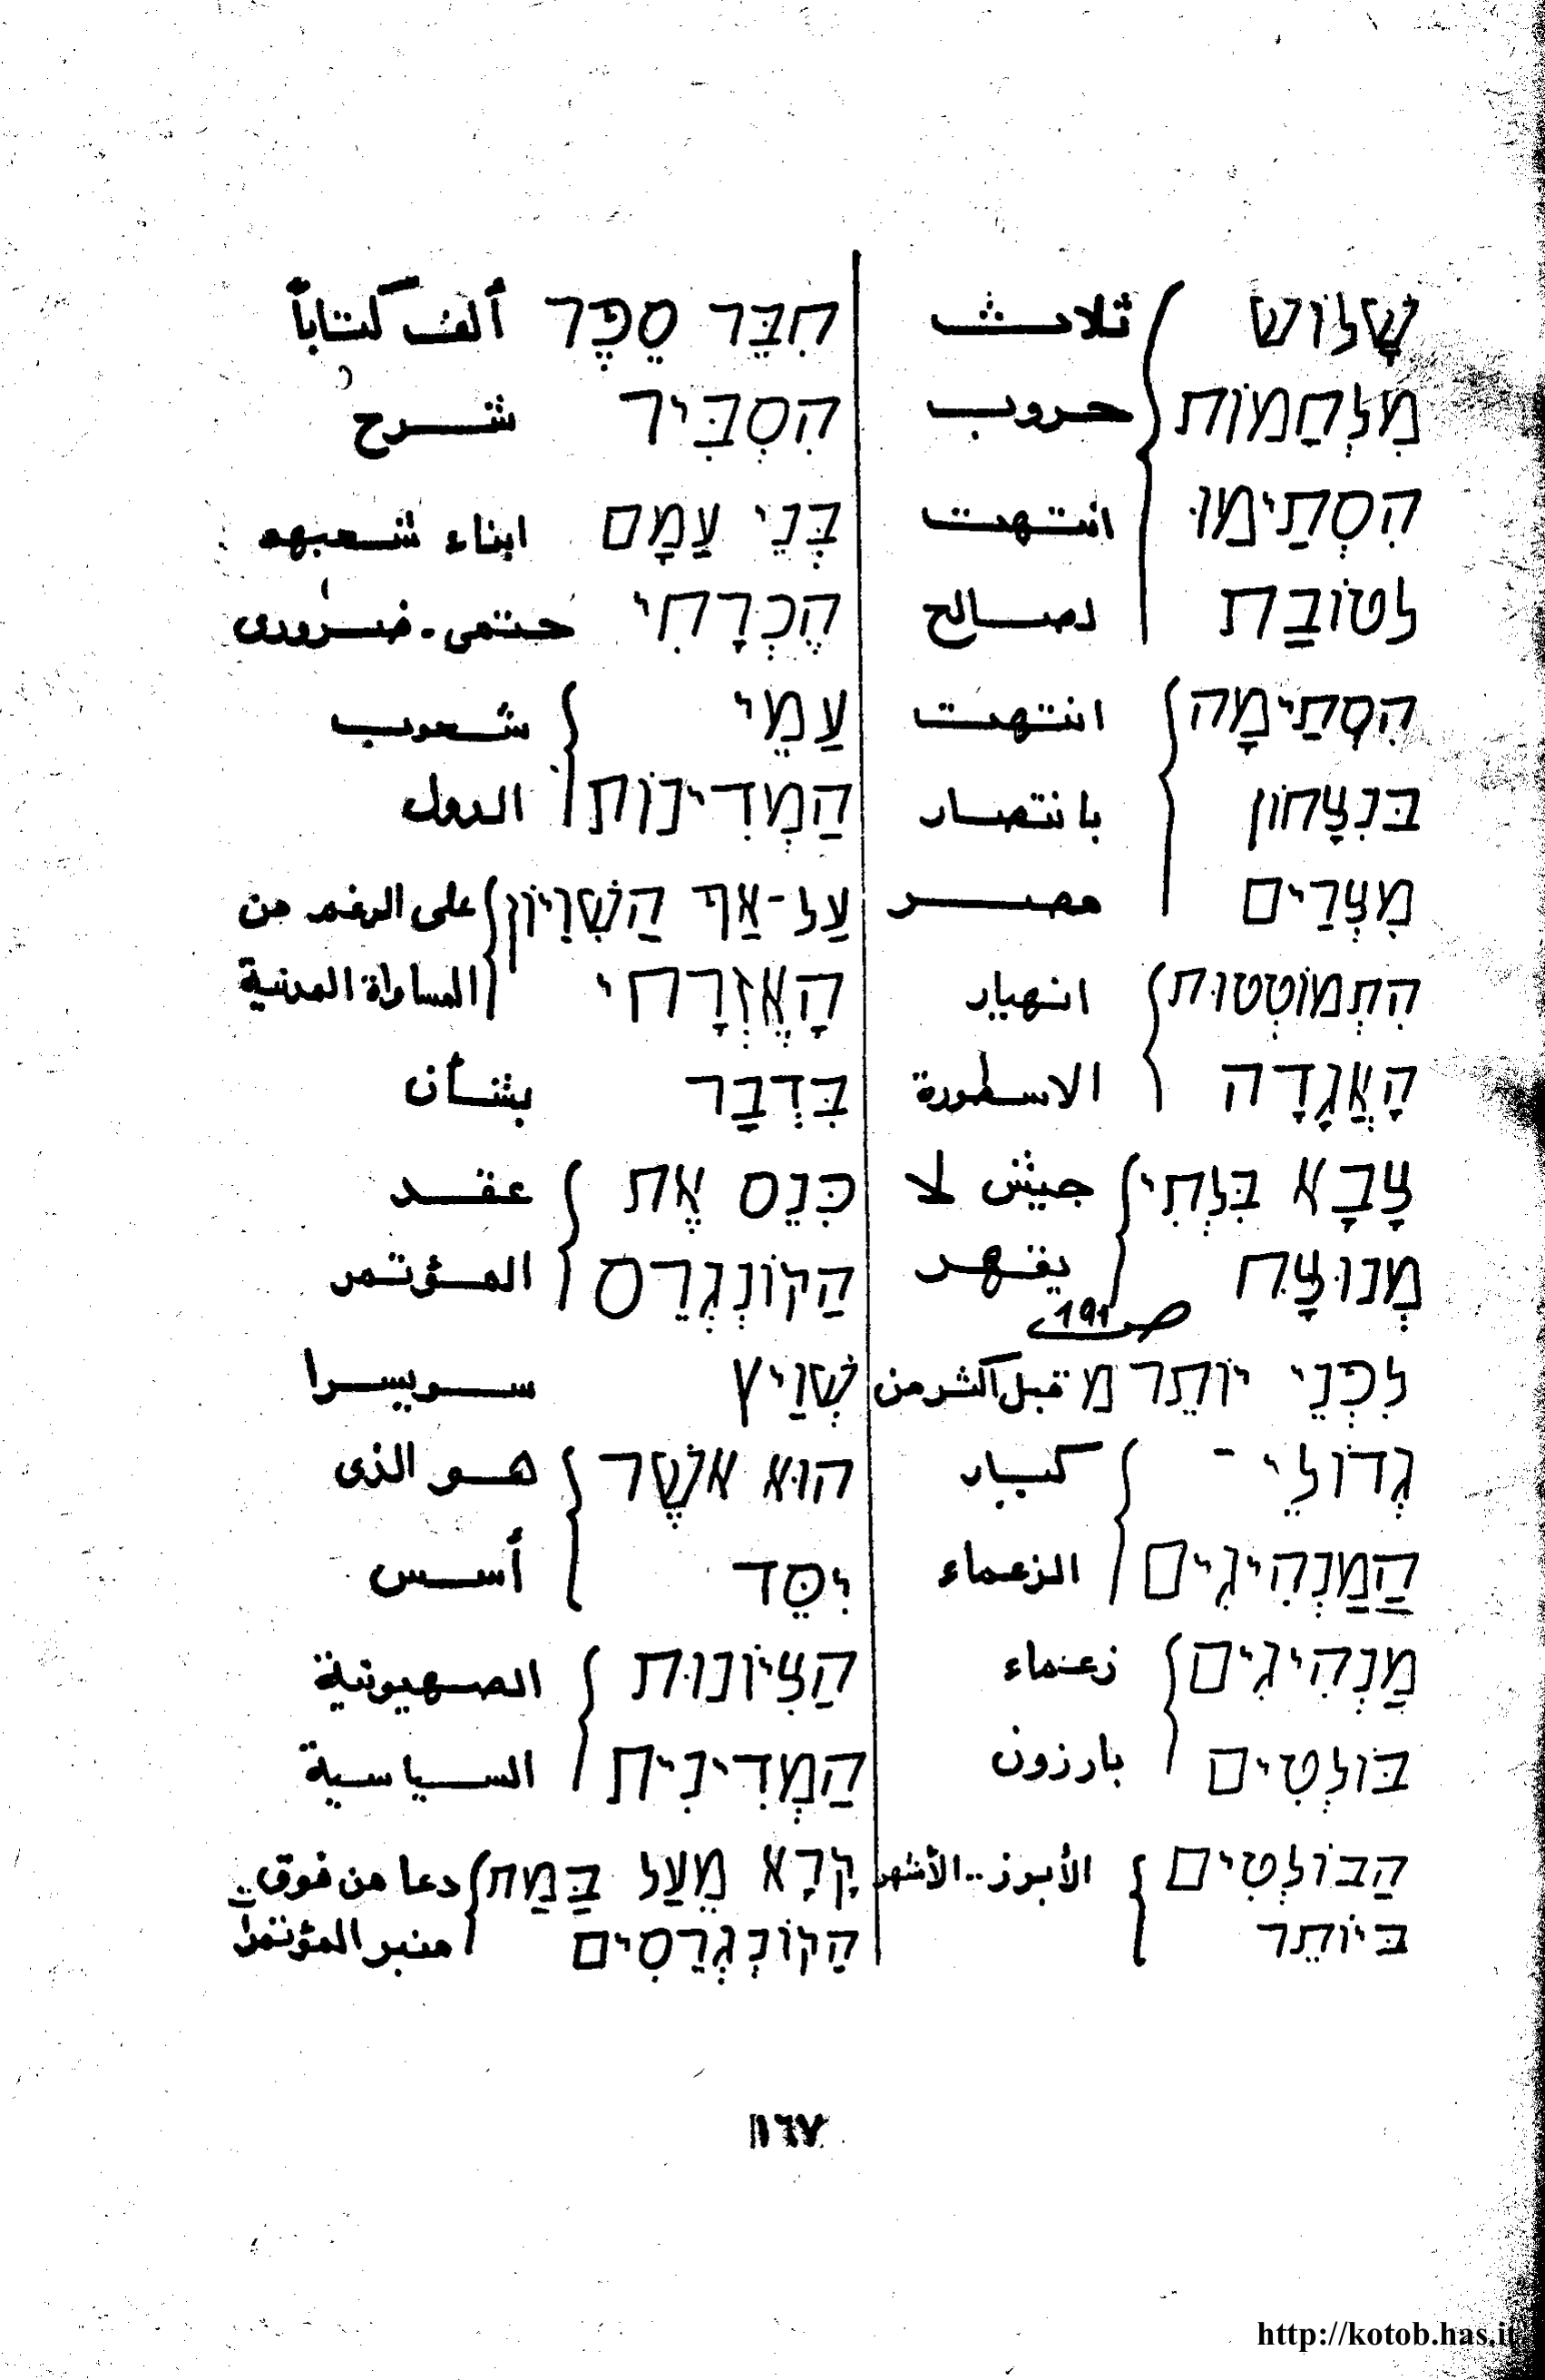 שָׁלוֹשׁ ثلاث
מִלְחָמוֹת حروب
הִסְתַּיְמוּ انتهت
לְטוֹבַת لصالح
הִסְתַּיְמָה انتهت
בְּנִצָּחוֹן بانتصار
מִצְרַיִם مصر
הִתְמוֹטְטוּת انهيار
הָאֲגָדָה الاسطورة
צָבָא בִּלְתִּי جيش لا
מְנוּצָּח يقهر
ص ١٩١
לִפְנֵי יוֹתֵר מ قبل أكثر من
גְדוֹלֵי - كبار
הַמַּנְהִיגִים الزعماء
מַנְהִיגִים زعماء
בּוֹלְטִים بارزون
הַבּוֹלְטִים الأبرز .. الأشهر
בְּיוֹתֵר
חִבֵּר סֵפֶר ألف كتاباً
הִסְבִּיר شرح
בְּנֵי עַמָּם ابناء شعبهم
הֶכְרָחִי حتمى - ضرورى
עַמֵי شعوب
הַמְדִינוֹת الدول
עַל-אַף הַשִּׁוְיוֹן على الرغم من
הָאֶזְרָחִי المساواة المدنية
בִּדְבָר بشأن
כִּנֵּס אֶת عقد
הַקּוֹנְגְרֵס المؤتمر
שְׁוַיְץ سويسرا
הוּא אשֶׁר هو الذى
יִסֵּד أسس
הַצִּיּוֹנוּת الصهيونية
הַמְדִינִית السياسية
קָרָא מֵעַל בָּמַת دعا من فوق
הַקּוֹנְגְרֵסִים منبر المؤتمرات
١٦٧
http://kotob.has.it